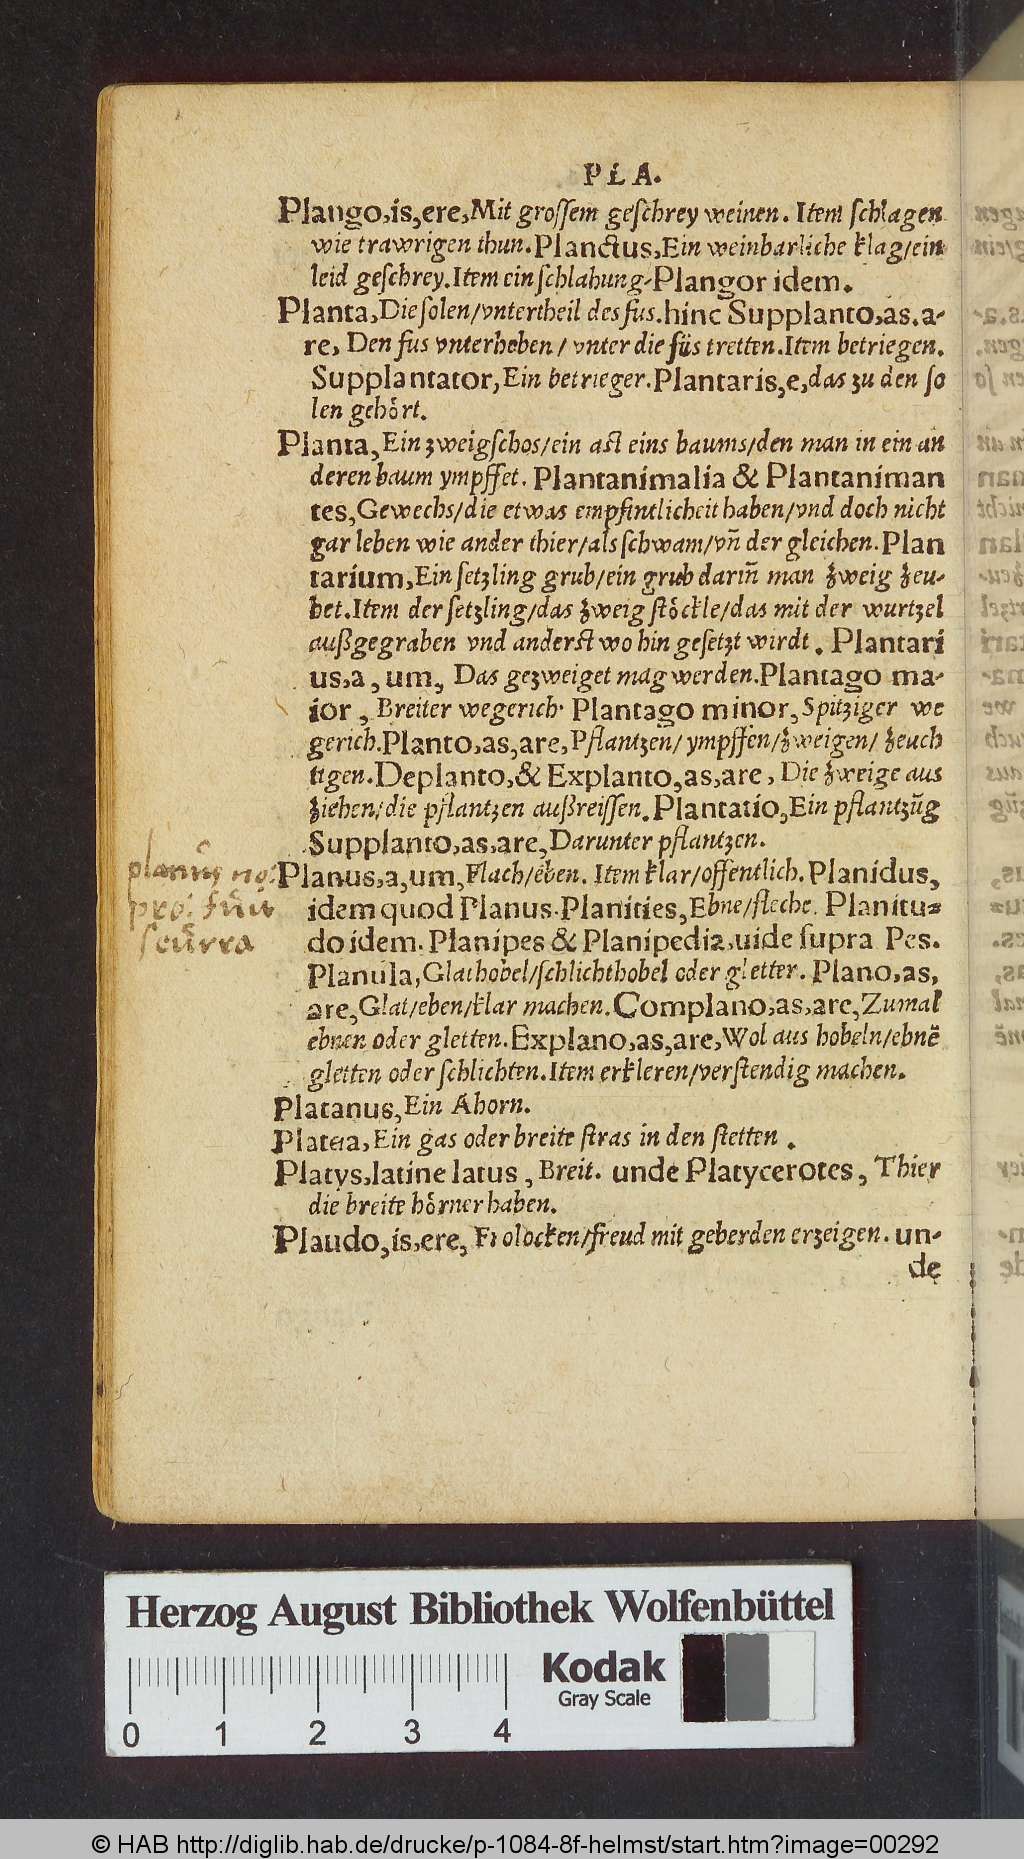 PLA.
Plango,is,ere,Mit grossem geschrey weinen. Item schlagen
wie trawrigen thun.Planctus,Ein weinbarliche klag/ein
leid geschrey.Item ein schlahung.Plangor idem.
Planta,Die solen/vntertheil des fus.hinc Supplanto,as.a-
re, Den fus vnterheben/vnter die füs tretten.Item betriegen.
Supplantator,Ein betrieger.Plantaris,e,das zu den so
len gehört.
Planta,Ein zweigschos/ein ast eins baums/den man in ein an
deren baum ympffet. Plantanimalia & Plantaniman
tes,Gewechs/die etwas empfintlicheit haben/vnd doch nicht
gar leben wie ander thier/als schwam/vñ der gleichen.Plan
tarium,Ein setzling grub/ein grub dariñ man zweig zeu-
het.Item der setzling/das zweig stöckle/das mit der wurtzel
außgegraben vnd anderst wo hin gesetzt wirdt. Plantari
us,a,um, Das gezweiget mag werden.Plantago ma-
ior, Breiter wegerich. Plantago minor,Spitziger we
gerich.Planto,as,are,Pflantzen/ympffen/zweigen/zeuch
tigen.Deplanto,& Explanto,as,are, Die zweige aus
ziehen/die pflantzen außreissen.Plantatio,Ein pflantzūg
Supplanto,as,are,Darunter pflantzen.
Planus,a,um,Flach/eben. Item klar/offentlich.Planidus,
idem quod Planus.Planities,Ebne/fleche. Planitu-
do idem.Planipes & Planipedia,uide supra Pes.
Planula,Glathobel/schlichthobel oder gletter.Plano,as,
are,Glat/eben/klar machen.Complano,as,are,Zumal
ebnen oder gletten.Explano,as,are,Wol aus hobeln/ebnē
gletten oder schlichten.Item erkleren/verstendig machen.
Platanus,Ein Ahorn.
Platea,Ein gas oder breite stras in den stetten.
Platys,latine latus, Breit. unde Platycerotes, Thier
die breite hörner haben.
Plaudo,is,ere, Frolocken/freud mit geberden erzeigen. un-
de
planus
pro
scurra
Herzog August Bibliothek Wolfenbüttel
Kodak
Gray Scale
0 1 2 3 4
© HAB http://diglib.hab.de/drucke/p-1084-8f-helmst/start.htm?image=00292